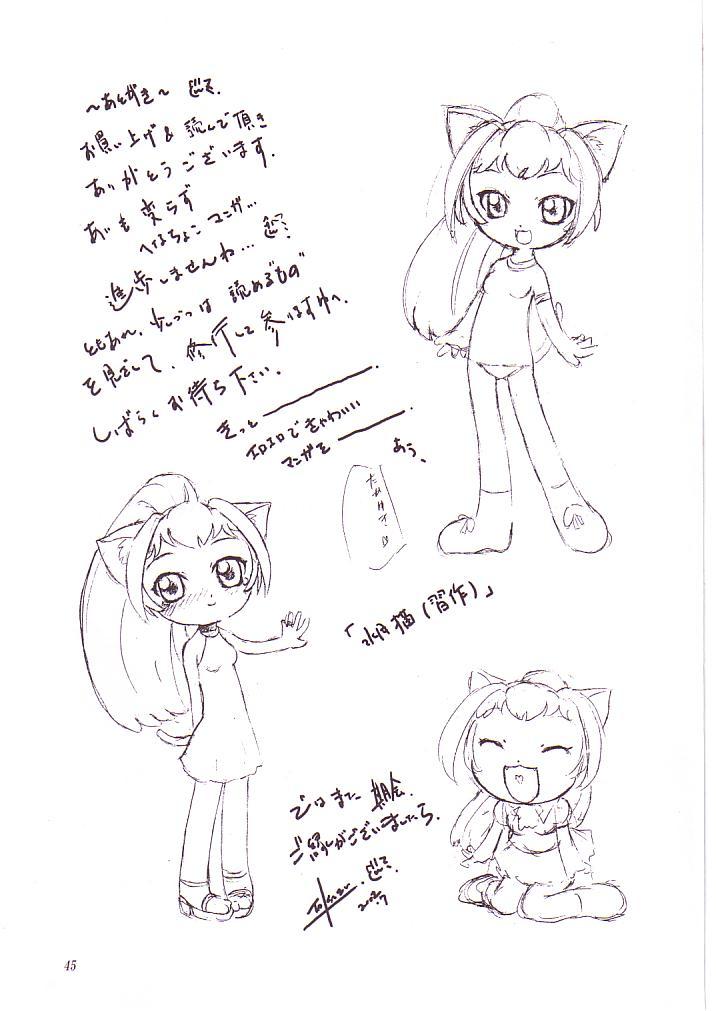 ～あとがき～
お買い上げ & 読んで頂き
ありがとうございます.
あいも変らず
へなちょこマンガ…
進歩しませんね…
ともあれ、少しづつは 読める"もの"
を見ざして、修行して参りますゆへ、
しばらくお待ち下さい.
きっと ――――.
エロエロできゃわいい
マンガを ――――.
あう、
「水月猫(習作)」
ではまた 期会.
ご縁がございましたら.
2002.7
45